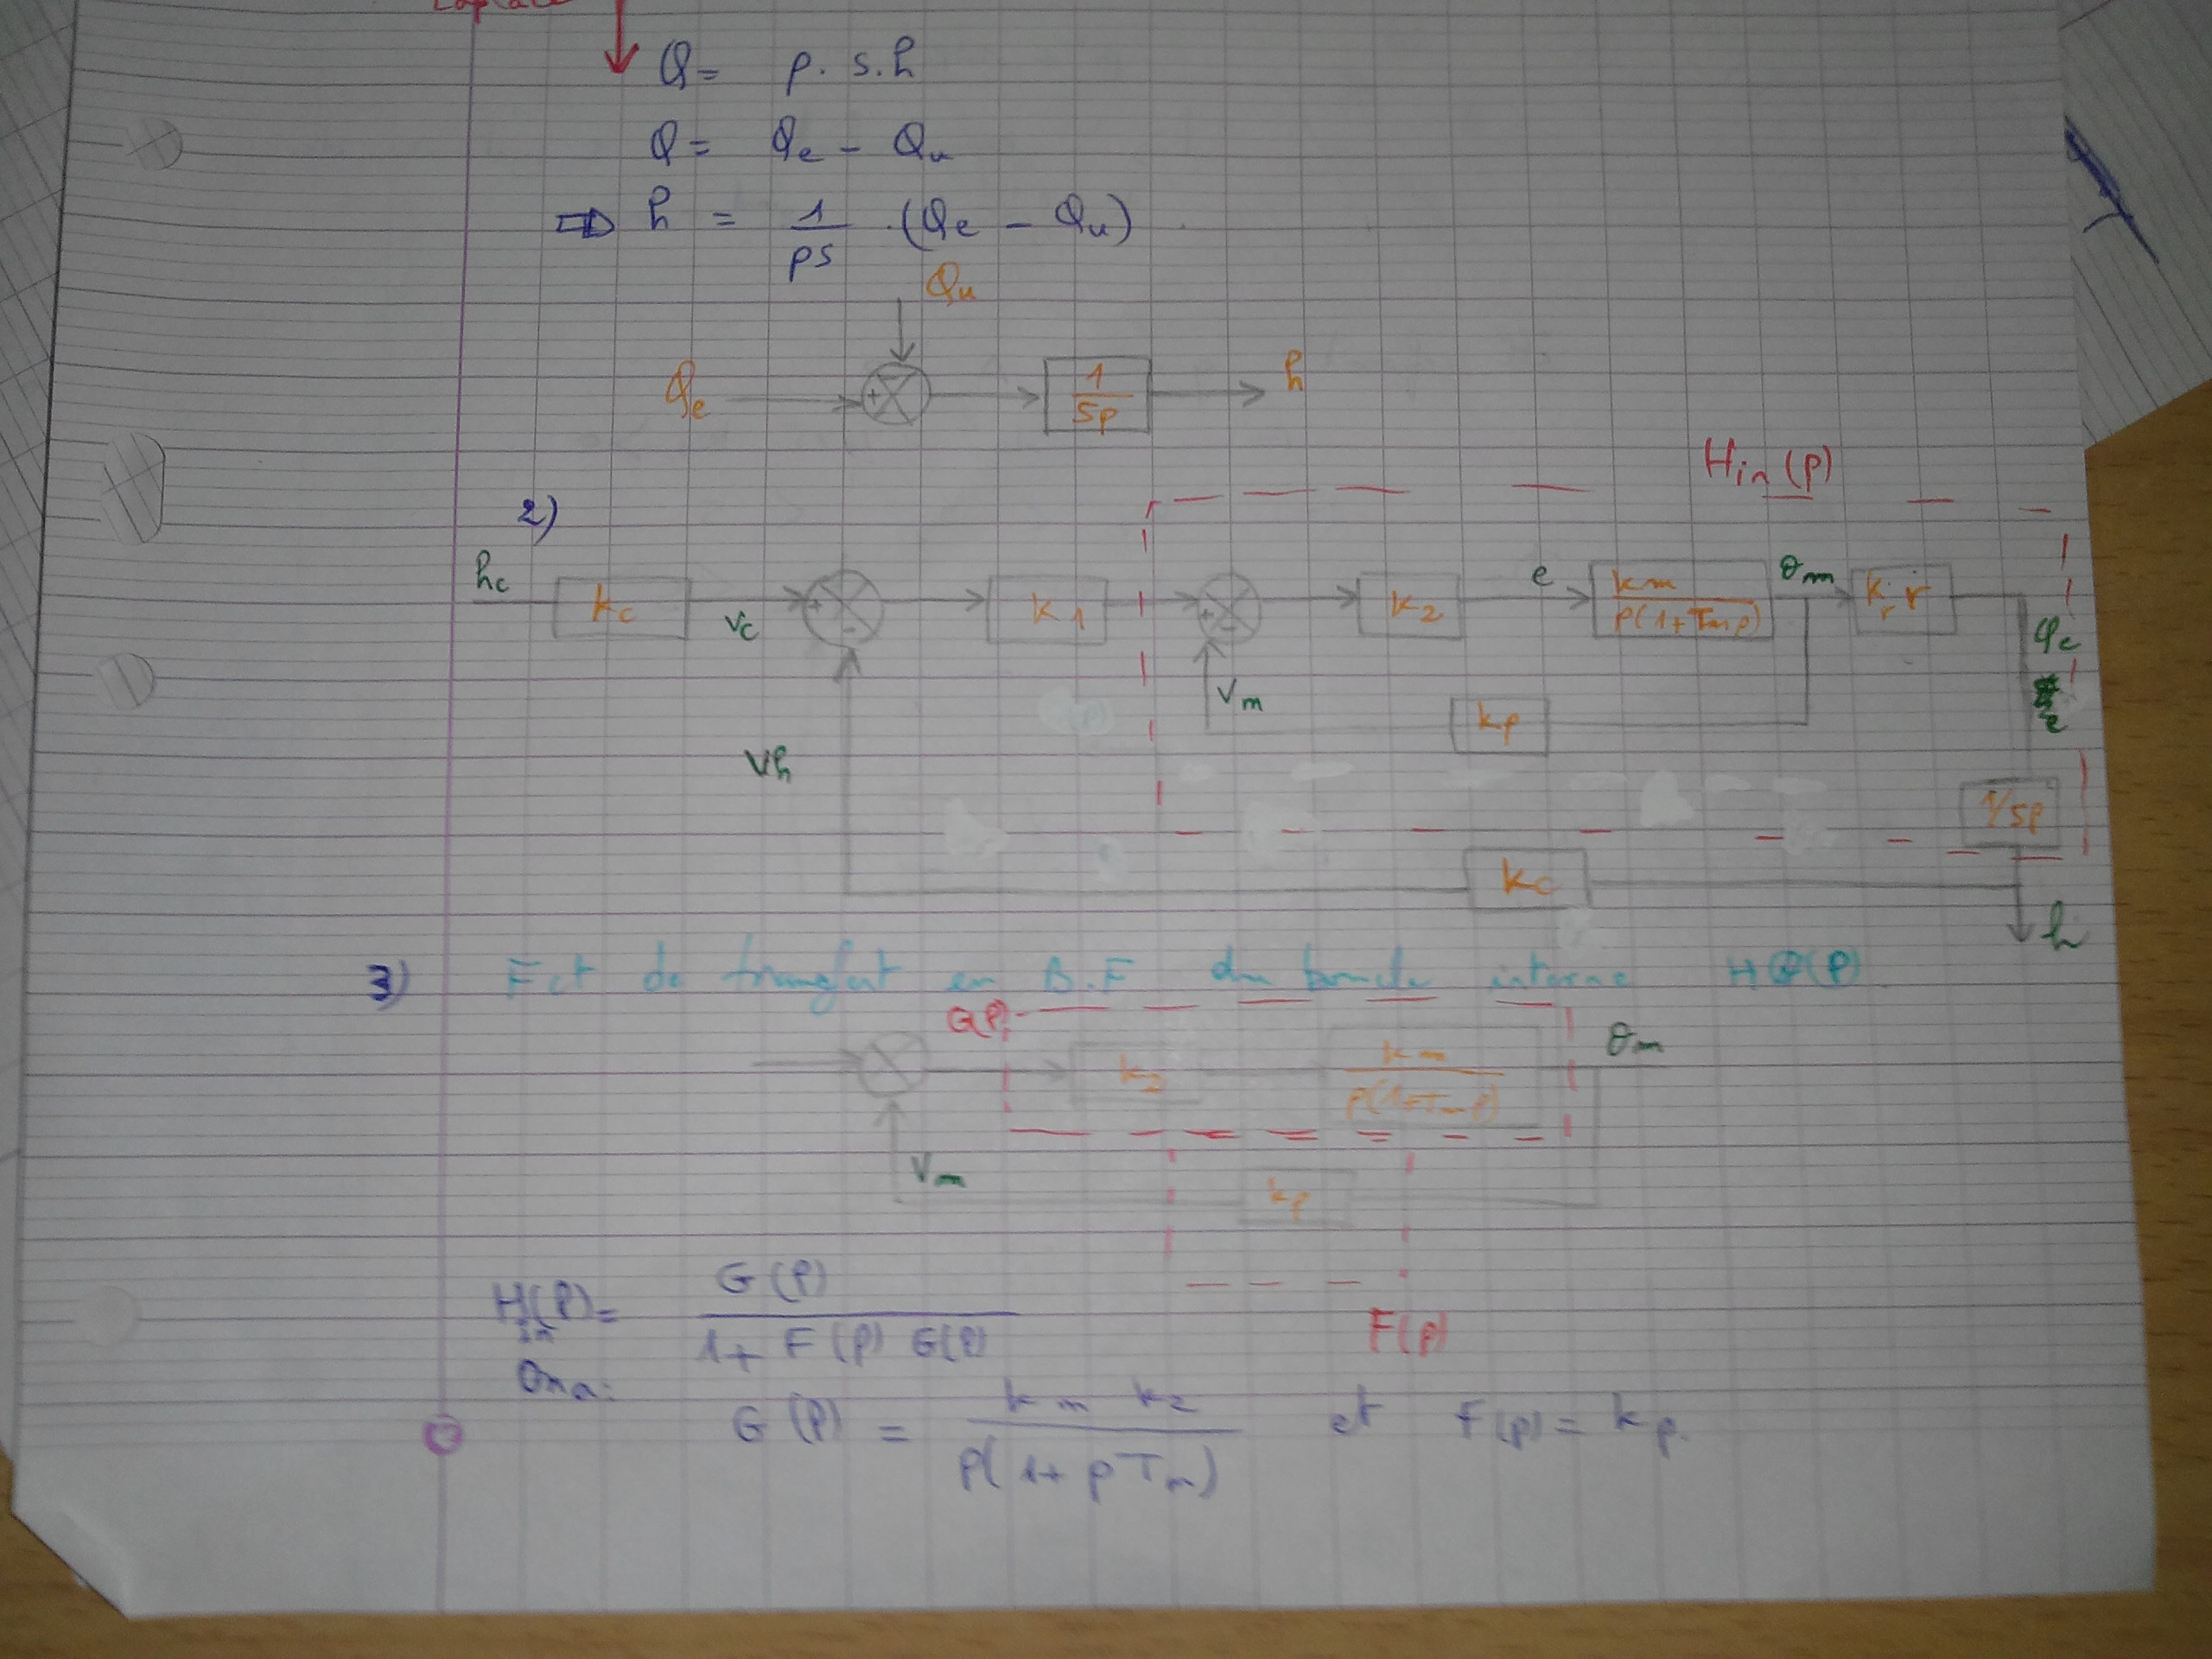 Laplace
Q = p. s. h
Q = Qe - Qu
⇒ h = 1/ps . (Qe - Qu)
Qu
Qe + 1/Sp h
Hin(p)
2)
hc kc vc + - k1 + - k2 e km/p(1+Tmp) θm kr r Qe
Vm kp
Vh
1/Sp
kc
h
3) Fct de transfert en B.F du boucle interne
G(P)
k2 km/p(1+Tmp) θm
Vm kp
F(p)
Hin(P) = G(P)/1+ F(P) G(P)
On a:
G(P) = km k2/P(1+ pTm) et F(p) = kp.